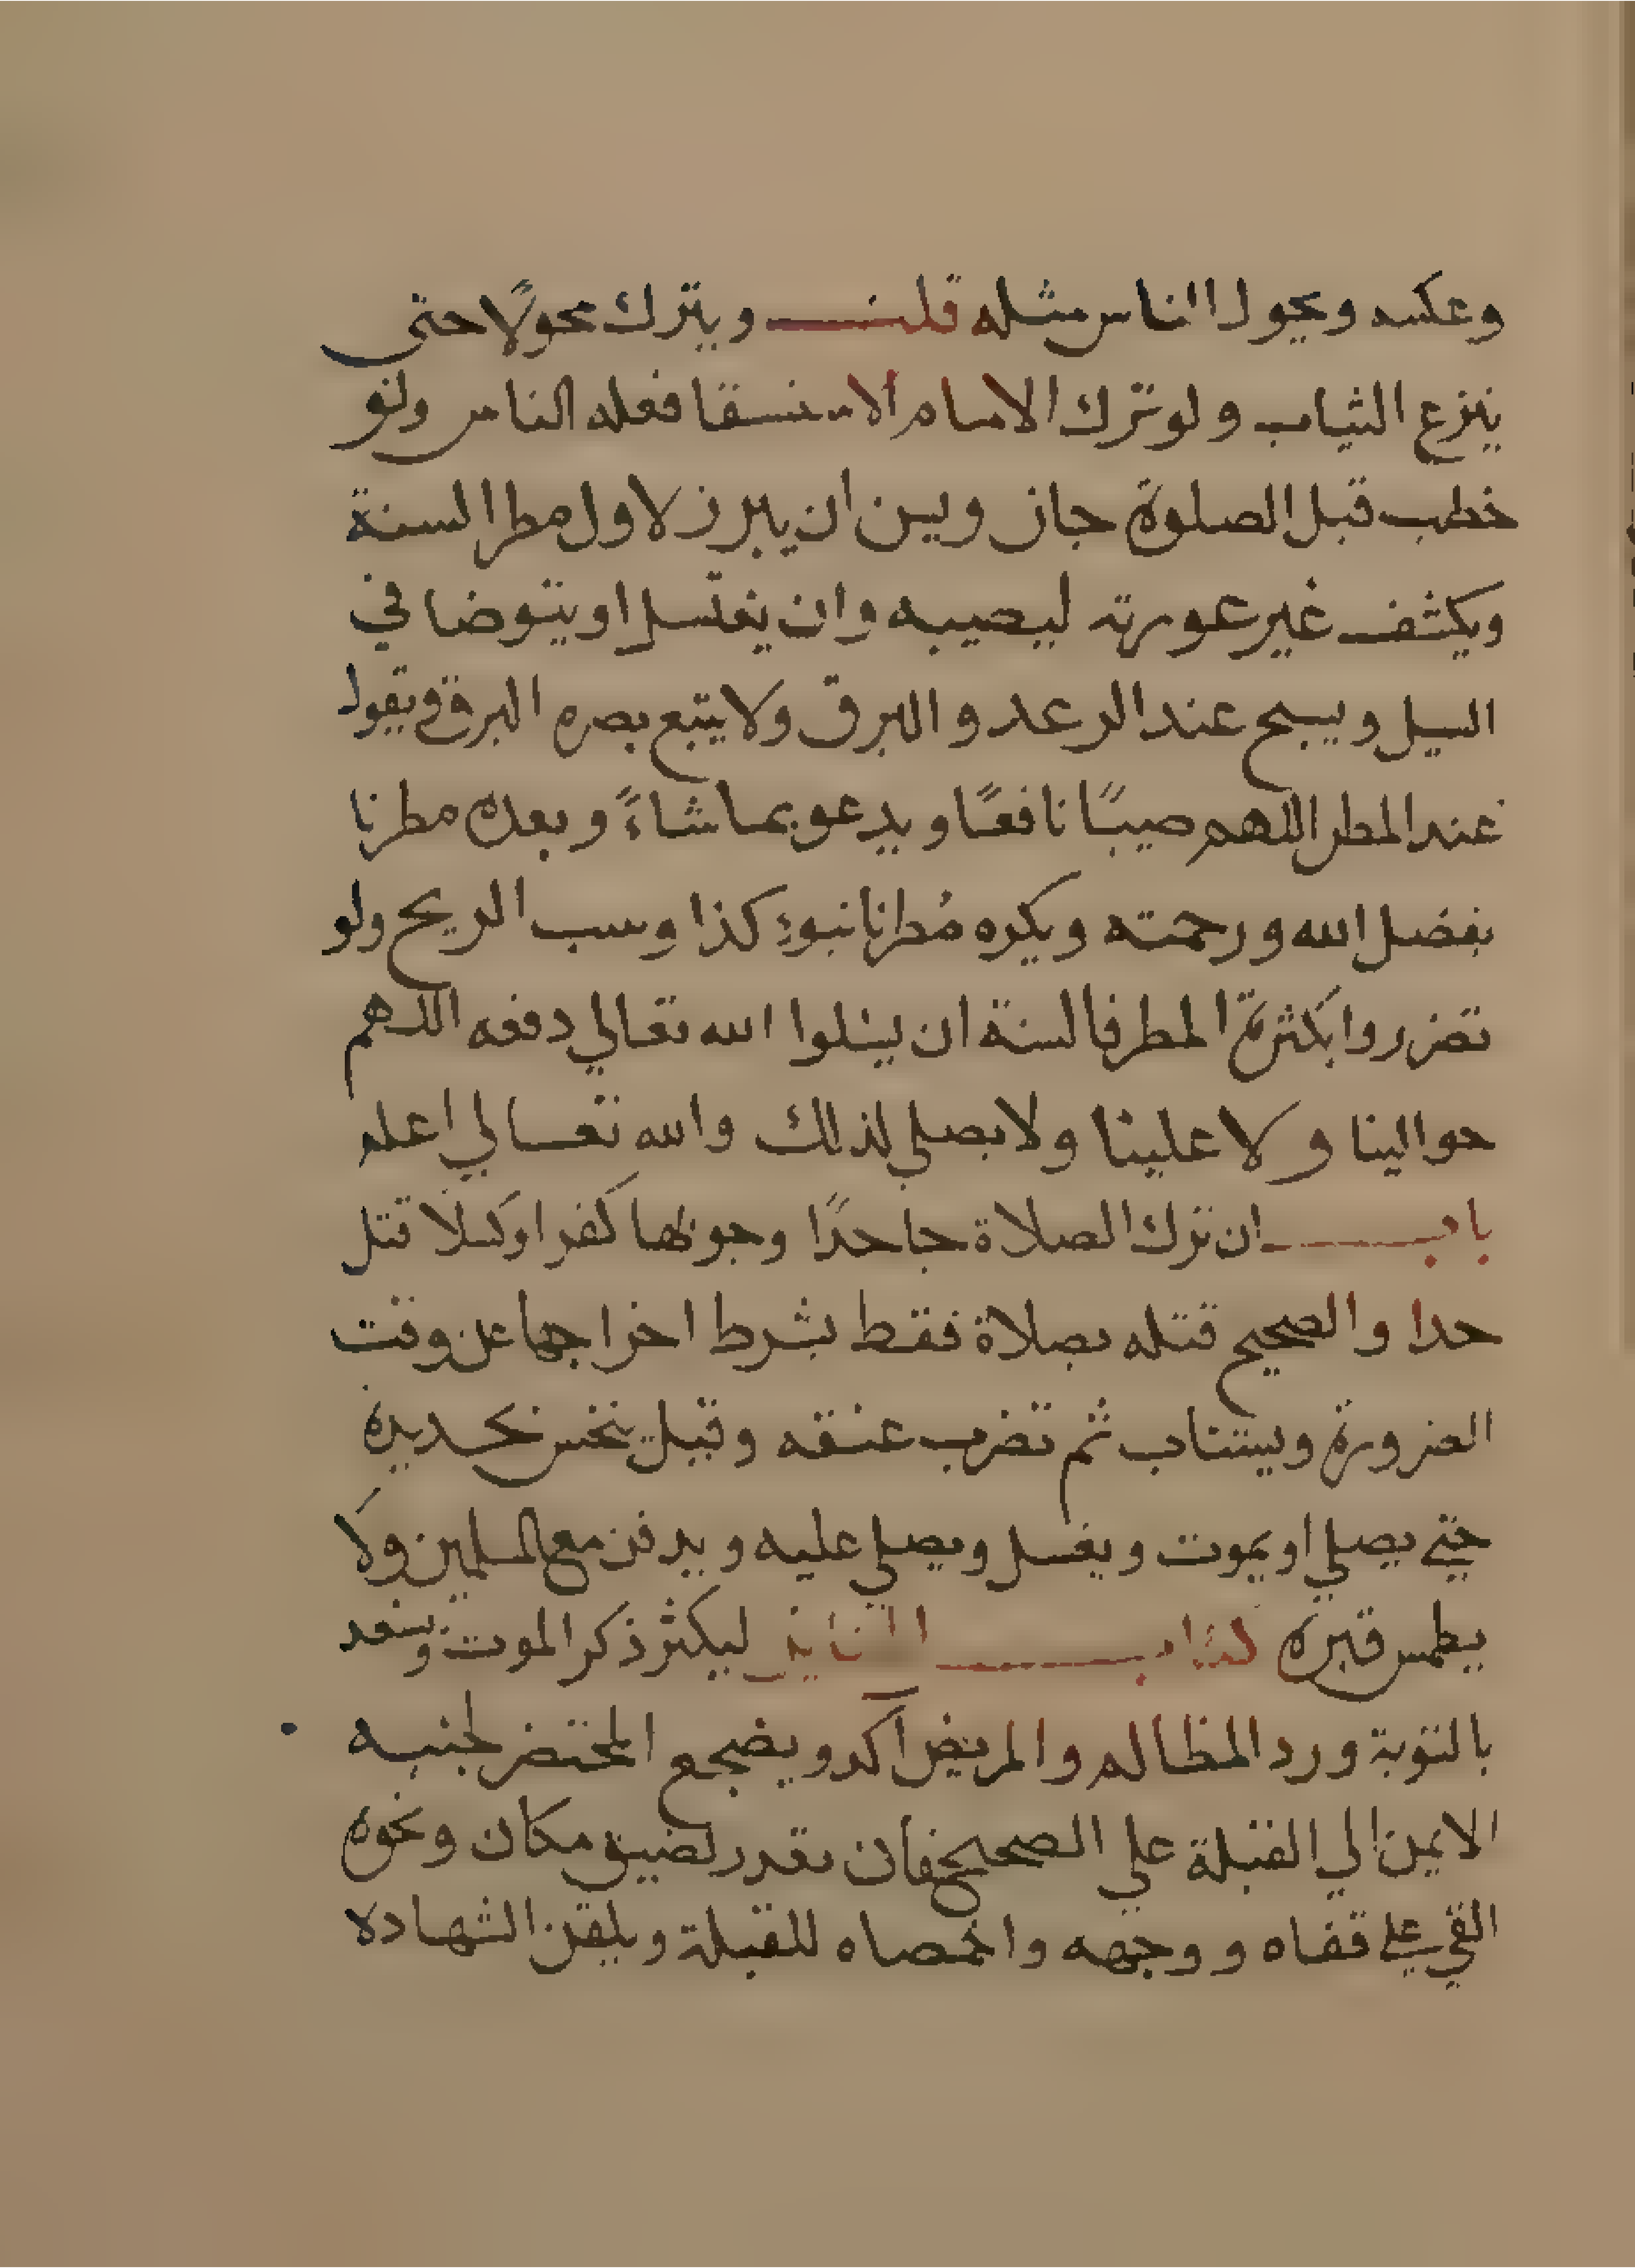 وعكسه ويحول الناس مثله قلت ويترك محولًا حتى
ينزع الثياب ولو ترك الامام الاستسقا فعله الناس ولو
خطب قبل الصلوة جاز ويسن ان يبرز لاول مطر السنة
ويكشف غير عورته ليصيبه وان يغتسل او يتوضا في
السيل ويسبح عند الرعد والبرق ولا يتبع بصره البرق ويقول
عند المطر اللهم صيبًا نافعًا ويدعو بما شاءً وبعده مطرنا
بفضل الله ورحمته ويكره مُطرنا بنوءِ كذا وسب الريح ولو
تضرروا بكثرة المطر فالسنة ان يسلوا الله تعالي دفعه اللهم
حوالينا ولا علينا ولا يصلي لذلك والله تعالي اعلم
باب ان ترك الصلاة جاحدًا وجوبها كفر او كسلا قتل
حدا والصحيح قتله بصلاة فقط بشرط اخراجها عن وقت
الضرورة ويستتاب ثم تضرب عنقه وقيل ينخس بحديدة
حتي يصلي او يموت ويغسل ويصلي عليه ويدفن مع المسلمين ولا
يطمس قبره كتاب الجنايز ليكثر ذكر الموت ويستعد
بالتوبة ورد المظالم والمريض آكد ويضجع المحتضر لجنبه
الايمن الي القبلة علي الصحيح فان تعذر لضيق مكان ونحوه
القي علي قفاه ووجهه واخمصاه للقبلة ويلقن الشهادة